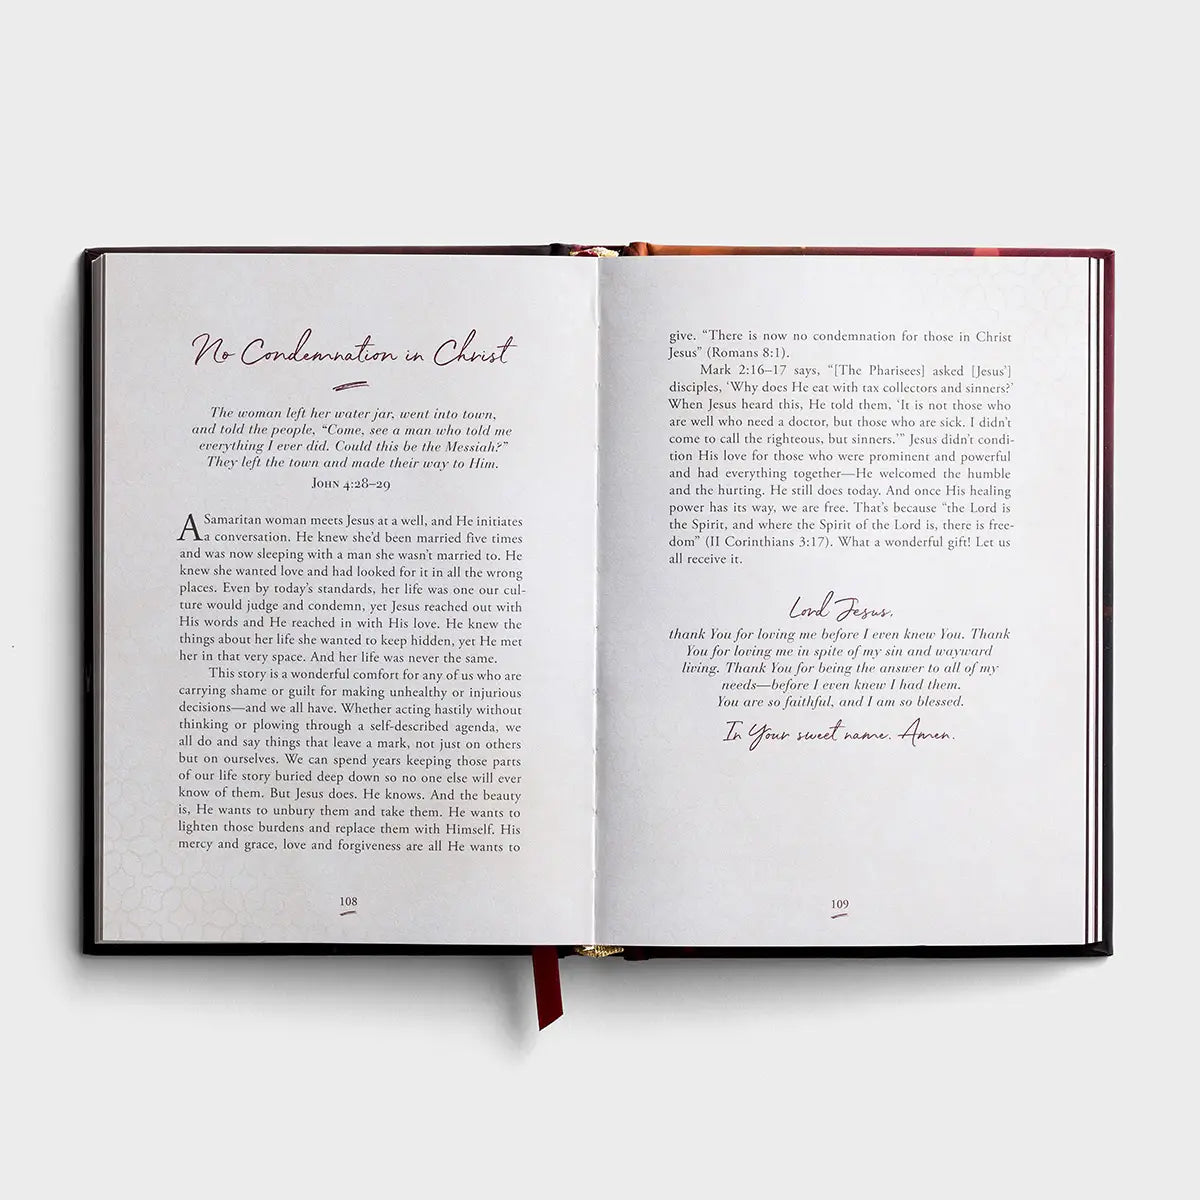 No Condemnation in Christ
The woman left her water jar, went into town,
and told the people, “Come, see a man who told me
everything I ever did. Could this be the Messiah?”
They left the town and made their way to Him.
John 4:28–29
A Samaritan woman meets Jesus at a well, and He initiates
a conversation. He knew she’d been married five times
and was now sleeping with a man she wasn’t married to. He
knew she wanted love and had looked for it in all the wrong
places. Even by today’s standards, her life was one our cul-
ture would judge and condemn, yet Jesus reached out with
His words and He reached in with His love. He knew the
things about her life she wanted to keep hidden, yet He met
her in that very space. And her life was never the same.
This story is a wonderful comfort for any of us who are
carrying shame or guilt for making unhealthy or injurious
decisions—and we all have. Whether acting hastily without
thinking or plowing through a self-described agenda, we
all do and say things that leave a mark, not just on others
but on ourselves. We can spend years keeping those parts
of our life story buried deep down so no one else will ever
know of them. But Jesus does. He knows. And the beauty
is, He wants to unbury them and take them. He wants to
lighten those burdens and replace them with Himself. His
mercy and grace, love and forgiveness are all He wants to
108
give. “There is now no condemnation for those in Christ
Jesus” (Romans 8:1).
Mark 2:16–17 says, “[The Pharisees] asked [Jesus’]
disciples, ‘Why does He eat with tax collectors and sinners?’
When Jesus heard this, He told them, ‘It is not those who
are well who need a doctor, but those who are sick. I didn’t
come to call the righteous, but sinners.’” Jesus didn’t condi-
tion His love for those who were prominent and powerful
and had everything together—He welcomed the humble
and the hurting. He still does today. And once His healing
power has its way, we are free. That’s because “the Lord is
the Spirit, and where the Spirit of the Lord is, there is free-
dom” (II Corinthians 3:17). What a wonderful gift! Let us
all receive it.
Lord Jesus,
thank You for loving me before I even knew You. Thank
You for loving me in spite of my sin and wayward
living. Thank You for being the answer to all of my
needs—before I even knew I had them.
You are so faithful, and I am so blessed.
In Your sweet name. Amen.
109